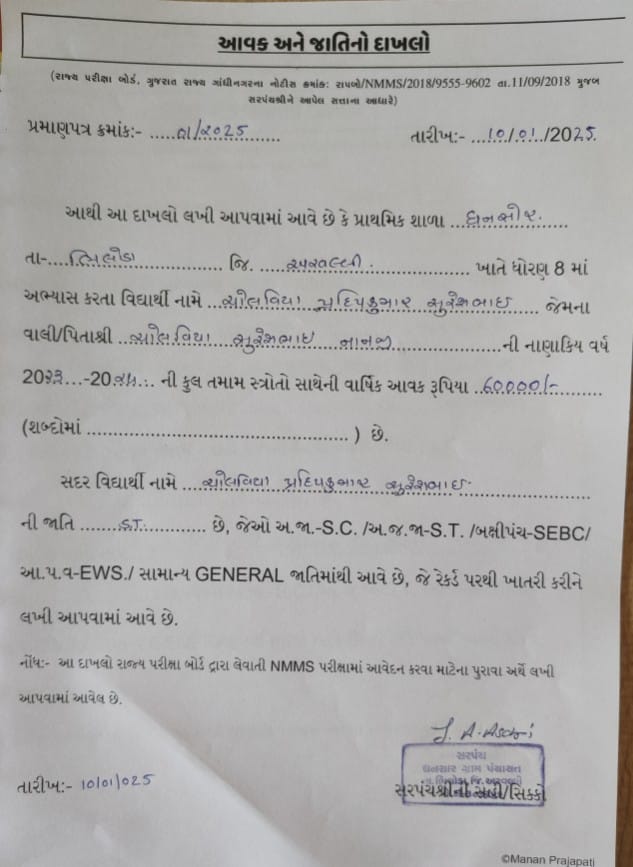 આવક અને જાતિનો દાખલો
(રાજ્ય પરીક્ષા બોર્ડ, ગુજરાત રાજ્ય ગાંધીનગરના નોટીસ ક્રમાંક: રાપબો/NMMS/2018/9555-9602 તા.11/09/2018 મુજબ
સરપંચશ્રીને આપેલ સત્તાના આધારે)
પ્રમાણપત્ર ક્રમાંક:- .....01/2025 તારીખ:- ...10/01/2025.
આથી આ દાખલો લખી આપવામાં આવે છે કે પ્રાથમિક શાળા ..ધનસોર.
તા-....ભિલોડા........... જિ. ....અરવલ્લી............... ખાતે ધોરણ 8 માં
અભ્યાસ કરતા વિદ્યાર્થી નામે ...પ્રદિપકુમાર સુરેશભાઇ.... જેમના
વાલી/પિતાશ્રી ...સુરેશભાઇ નાનજી..................ની નાણાકિય વર્ષ
20૨૩...-20૨૫... ની કુલ તમામ સ્ત્રોતો સાથેની વાર્ષિક આવક રૂપિયા ..60000/-
(શબ્દોમાં ............................................ ) છે.
સદર વિદ્યાર્થી નામે ...પ્રદિપકુમાર સુરેશભાઇ
ની જાતિ .......ST.......... છે, જેઓ અ.જા.-S.C. /અ.જ.જા-S.T. /બક્ષીપંચ-SEBC/
આ.પ.વ-EWS./ સામાન્ય GENERAL જાતિમાંથી આવે છે, જે રેકર્ડ પરથી ખાતરી કરીને
લખી આપવામાં આવે છે.
નોંધ:- આ દાખલો રાજ્ય પરીક્ષા બોર્ડ દ્વારા લેવાતી NMMS પરીક્ષામાં આવેદન કરવા માટેના પુરાવા અર્થે લખી
આપવામાં આવેલ છે.
સરપંચ
ધનસોર ગ્રામ પંચાયત
તા.ભિલોડા,જિ.અરવલ્લી
તારીખ:- 10/01/025 સરપંચશ્રીની સહી/સિક્કો
©Manan Prajapati